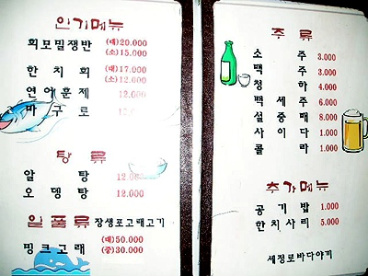 인기메뉴
회모밀쟁반 (대)20.000
(소)15.000
한치회 (대)17.000
(소)12.000
연어훈제 12.000
바구로
탕류
알탕
오뎅탕 12.000
일품류 장생포고래고기
밍크고래 (대)50.000
(중)30.000
주류
소주 3.000
맥주 3.000
청하 4.000
백세주 6.000
설중매 8.000
사이다 1.000
콜라 1.000
추가메뉴
공기밥 1.000
한치사리 5.000
세정로바다야기